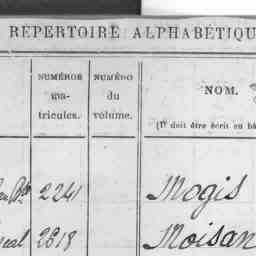 RÉPERTOIRE ALPHABÉTIQU
NUMÉROS
ma-
tricules.
NUMÉRO
du
volume.
NOM.
(Il doit être écrit en bâ
2241 Mogis
2618 Moisan